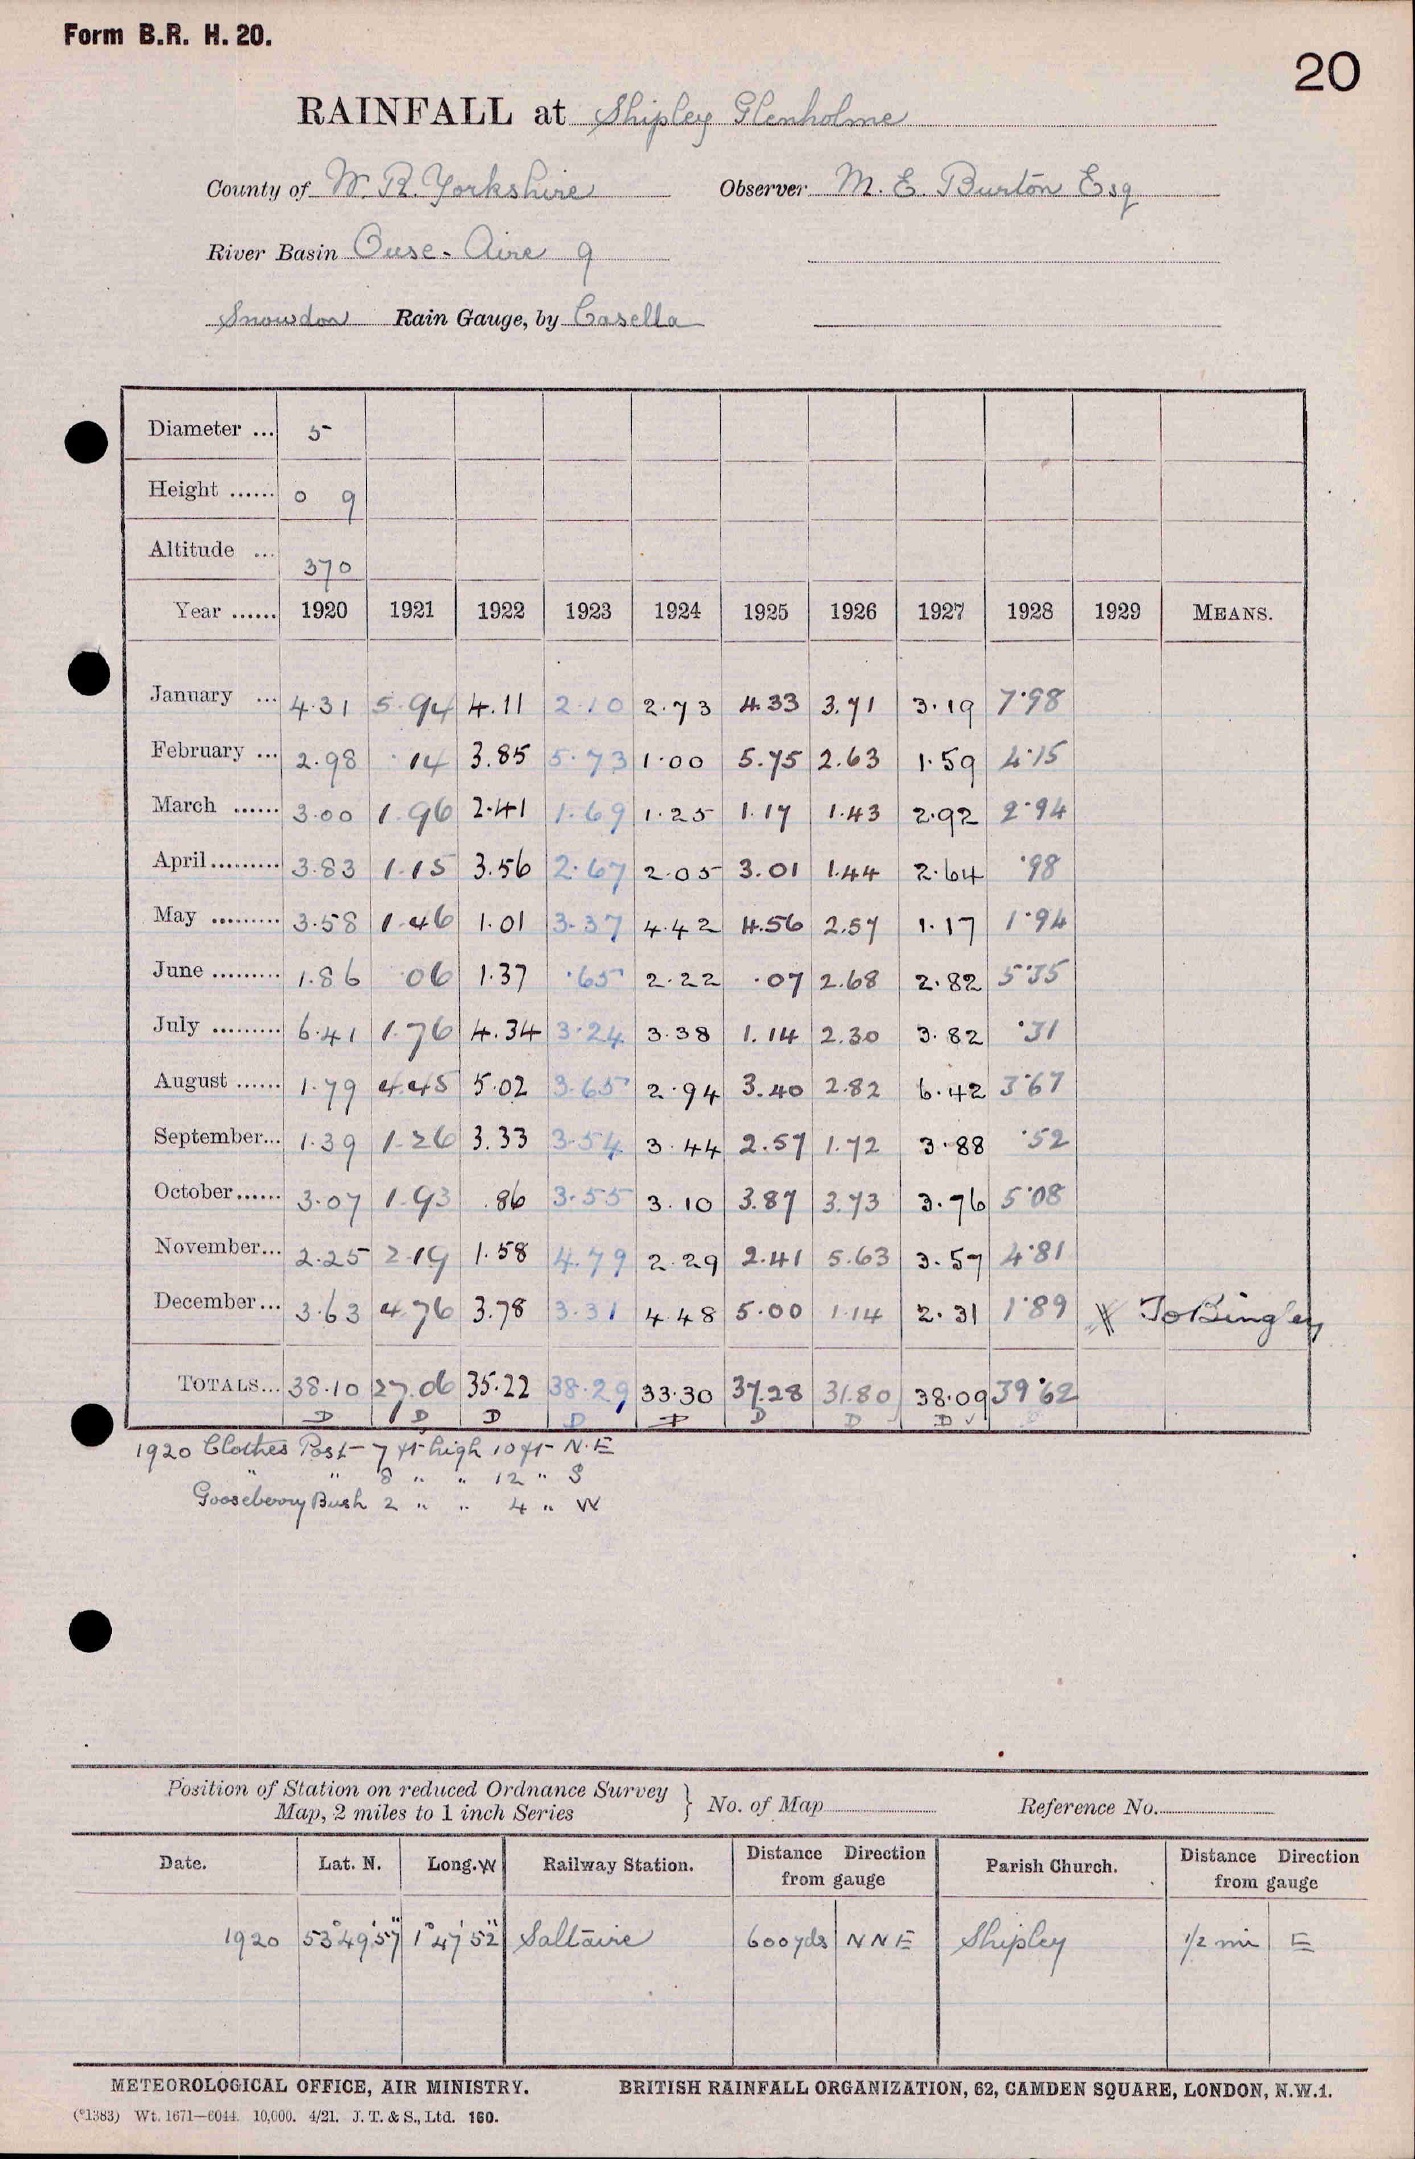 Form B.R. H. 20.
20
RAINFALL at Shipley Glenholme
County of W. R. Yorkshire Observer M. E. Burton Esq
River Basin Ouse - Aire 9
Snowdon Rain Gauge, by Casella
Diameter ... 5
Height ...... 0 9
Altitude ... 370
Year ...... 1920 1921 1922 1923 1924 1925 1926 1927 1928 1929 MEANS.
January ... 4.31 5.94 4.11 2.10 2.73 4.33 3.71 3.19 7.98
February ... 2.98 .14 3.85 5.73 1.00 5.75 2.63 1.59 4.15
March ...... 3.00 1.96 2.41 1.69 1.25 1.17 1.43 2.92 2.94
April ......... 3.83 1.15 3.56 2.67 2.05 3.01 1.44 2.64 .98
May ......... 3.58 1.46 1.01 3.37 4.42 4.56 2.57 1.17 1.94
June ......... 1.86 .06 1.37 .65 2.22 .07 2.68 2.82 5.35
July ......... 6.41 1.76 4.34 3.24 3.38 1.14 2.30 3.82 .31
August ...... 1.79 4.45 5.02 3.65 2.94 3.40 2.82 6.42 3.67
September... 1.39 1.26 3.33 3.54 3.44 2.57 1.72 3.88 .52
October...... 3.07 1.93 .86 3.55 3.10 3.87 3.73 3.76 5.08
November... 2.25 2.19 1.58 4.79 2.29 2.41 5.63 3.57 4.81
December... 3.63 4.76 3.78 3.31 4.48 5.00 1.14 2.31 1.89 To Bingley
TOTALS... 38.10 27.06 35.22 38.29 33.30 37.28 31.80 38.09 39.62
D D D D D D D D ✓
1920 Clothes Post 7 ft high 10 ft N.E
" " 8 " " 12 " S
Gooseberry Bush 2 " " 4 " W
Position of Station on reduced Ordnance Survey
Map, 2 miles to 1 inch Series } No. of Map Reference No.
Date. Lat. N. Long. W Railway Station. Distance Direction from gauge Parish Church. Distance Direction from gauge
1920 53°49'57" 1°47'52" Saltaire 600 yds N N E Shipley 1/2 mi E
METEOROLOGICAL OFFICE, AIR MINISTRY. BRITISH RAINFALL ORGANIZATION, 62, CAMDEN SQUARE, LONDON, N.W.1.
(*1383) Wt. 1671—6044. 10,000. 4/21. J. T. & S., Ltd. 160.